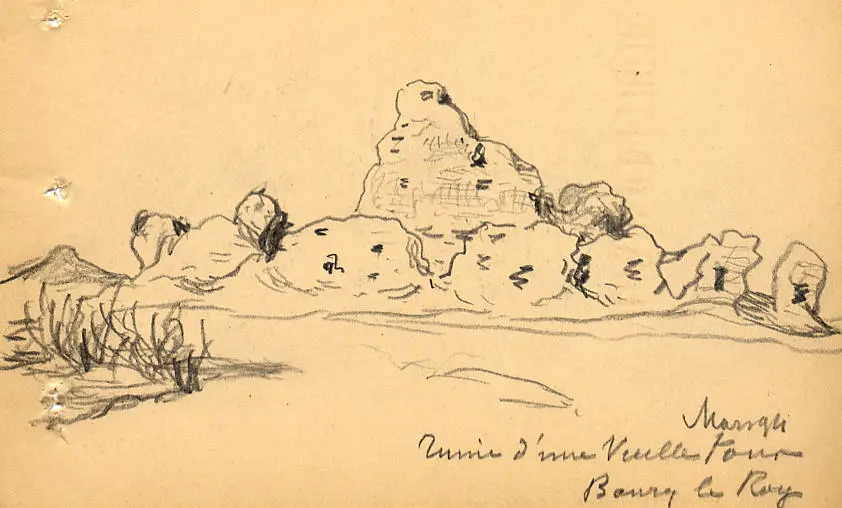 Ruine d'une Vieille Tour
Bourg le Roy